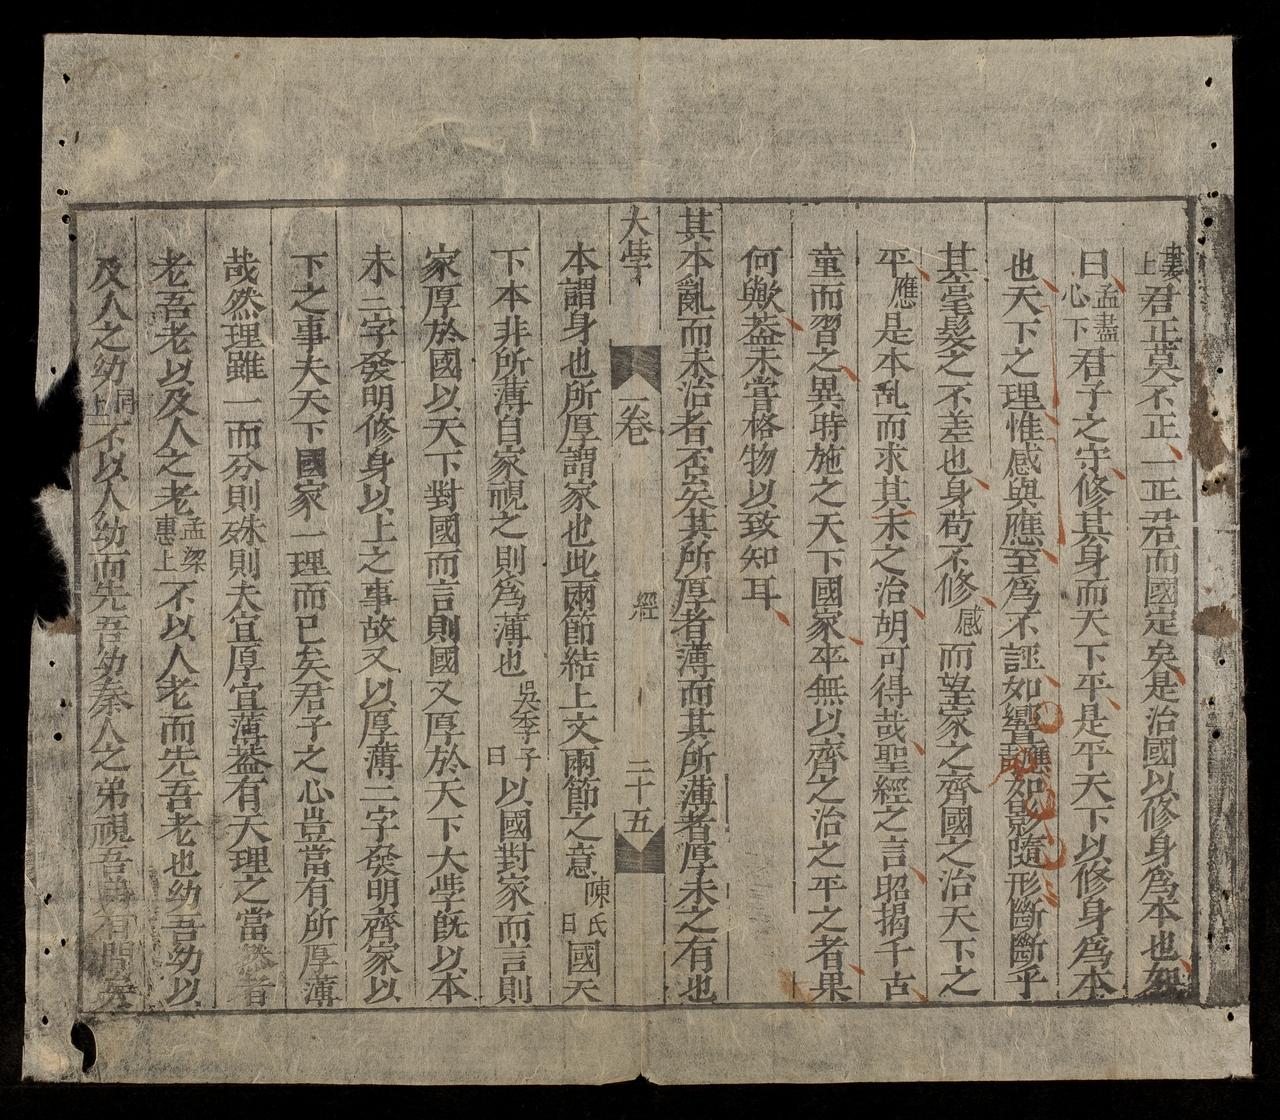 婁上君正莫不正一正君而國定矣是治國以修身爲本也知
曰孟盡心下君子之守修其身而天下平是平天下以修身爲本
也天下之理惟感與應至爲不誣如響應聲如影隨形斷斷乎
其毫髮之不差也身苟不修感而望家之齊國之治天下之
平應是本乱而求其末之治胡可得哉聖經之言昭揭千古
童而習之異時施之天下國家卒無以齊之治之平之者果
何與歟蓋未嘗格物以致知耳
其本亂而末治者否矣其所厚者薄而其所薄者厚未之有也
大學 卷 經 二十五
本謂身也所厚謂家也此兩節結上文兩節之意陳氏曰國天
下本非所薄自家視之則爲薄也吳季子曰以國對家而言則
家厚於國以天下對國而言則國又厚於天下大學旣以本
末二字發明修身以上之事故又以厚薄二字發明齊家以
下之事夫天下國家一理而已矣君子之心豈當有所厚薄
哉然理雖一而分則殊則夫宜厚宜薄蓋有天理之當然者
老吾老以及人之老孟梁惠上不以人老而先吾老也幼吾幼以
及人之幼同上不以人幼而先吾幼秦人之弟視吾弟有間